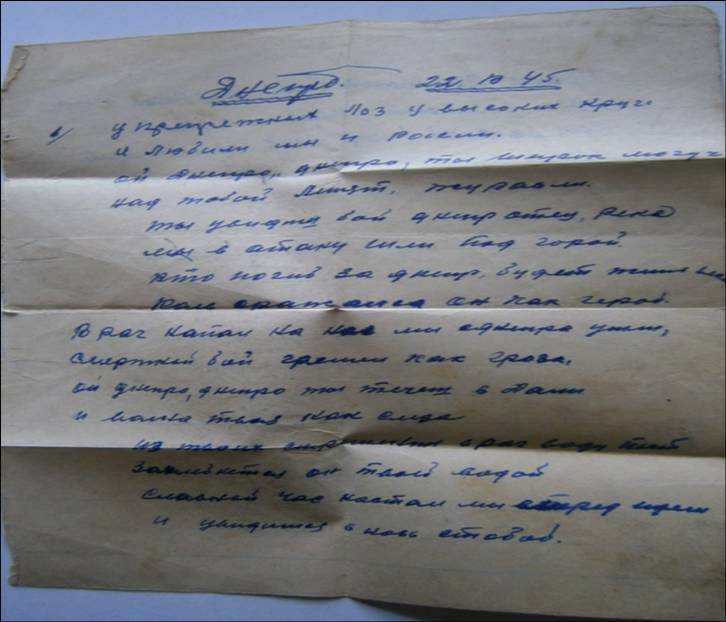 Днепро. 22 10 45.
1/ у прибрежних Лоз у высоких круч
и любили мы и росли.
ой Днепро, днепро, ты широк могуч
над тобой летят, журавли.
ты увидел бой днипр отец, река
мы в атаку шли под горой.
кто погиб за днипр, будет жить
коль сражался он как герой.
Враг напал на нас ми с днипра ушли,
смертный бой гремел как гроза,
ой днипро, днипро ты течеш в дали
и волна твоя как слеза
из твоих враг воду пьет
захлебнется он твоей водой
славный час настал ми вперед идем
и увидимся с